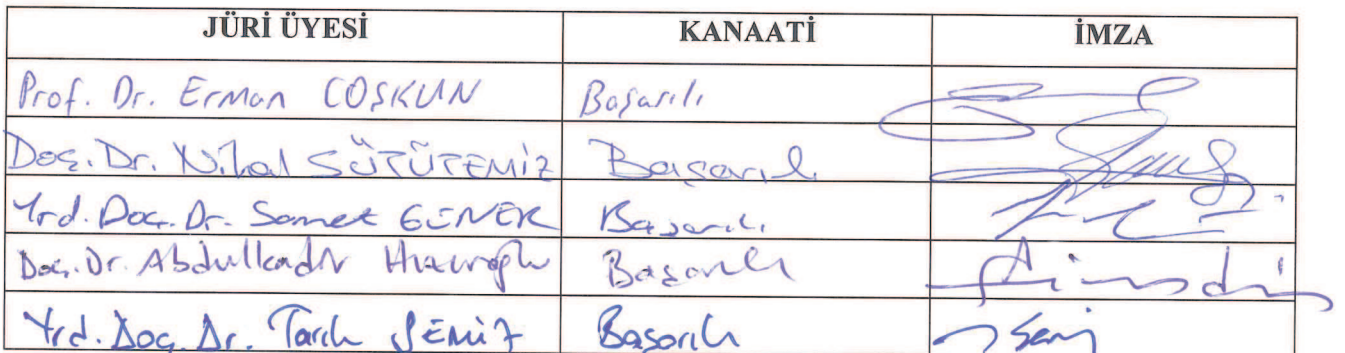 JÜRİ ÜYESİ KANAATİ İMZA
Prof. Dr. Erman COŞKUN Başarılı
Doç. Dr. Nihal SÜTÜTEMİZ Başarılı
Yrd. Doç. Dr. Samet GÜNER Başarılı
Doç. Dr. Abdulkadir Hızıroğlu Başarılı
Yrd. Doç. Dr. Tarık SEMİZ Başarılı